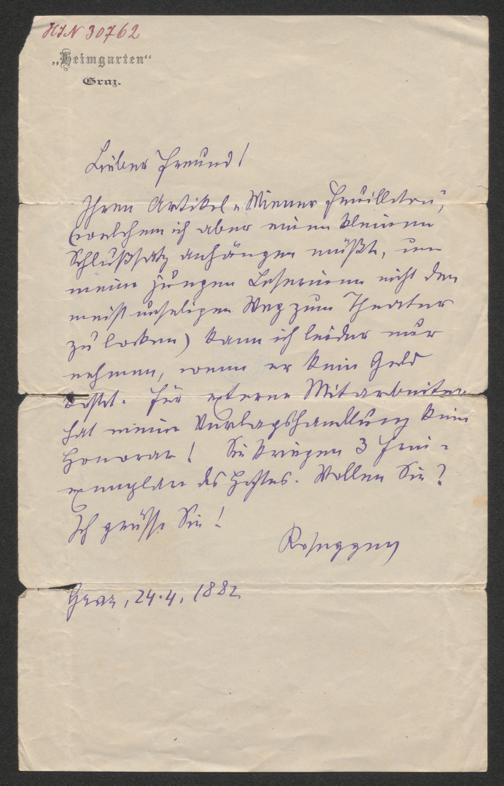 HIN 30762
„Heimgarten“
Graz.
Lieber Freund!
Ihren Artikel „Wiener Feuilleton“,
(welchem ich aber einen kleinen
Schlußsatz anhängen müßte, um
meine jungen Leserinen nicht den
meist unseligen Weg zum Theater
zu locken) kann ich leider nur
nehmen, wenn er kein Geld
kostet. Für externe Mitarbeiter
hat meine Verlagshandlung kein
Honorar! Sie kriegen 3 Frei=
exemplare des Heftes. Wollen Sie?
Ich grüsse Sie!
Rosegger
Graz, 24.4.1882